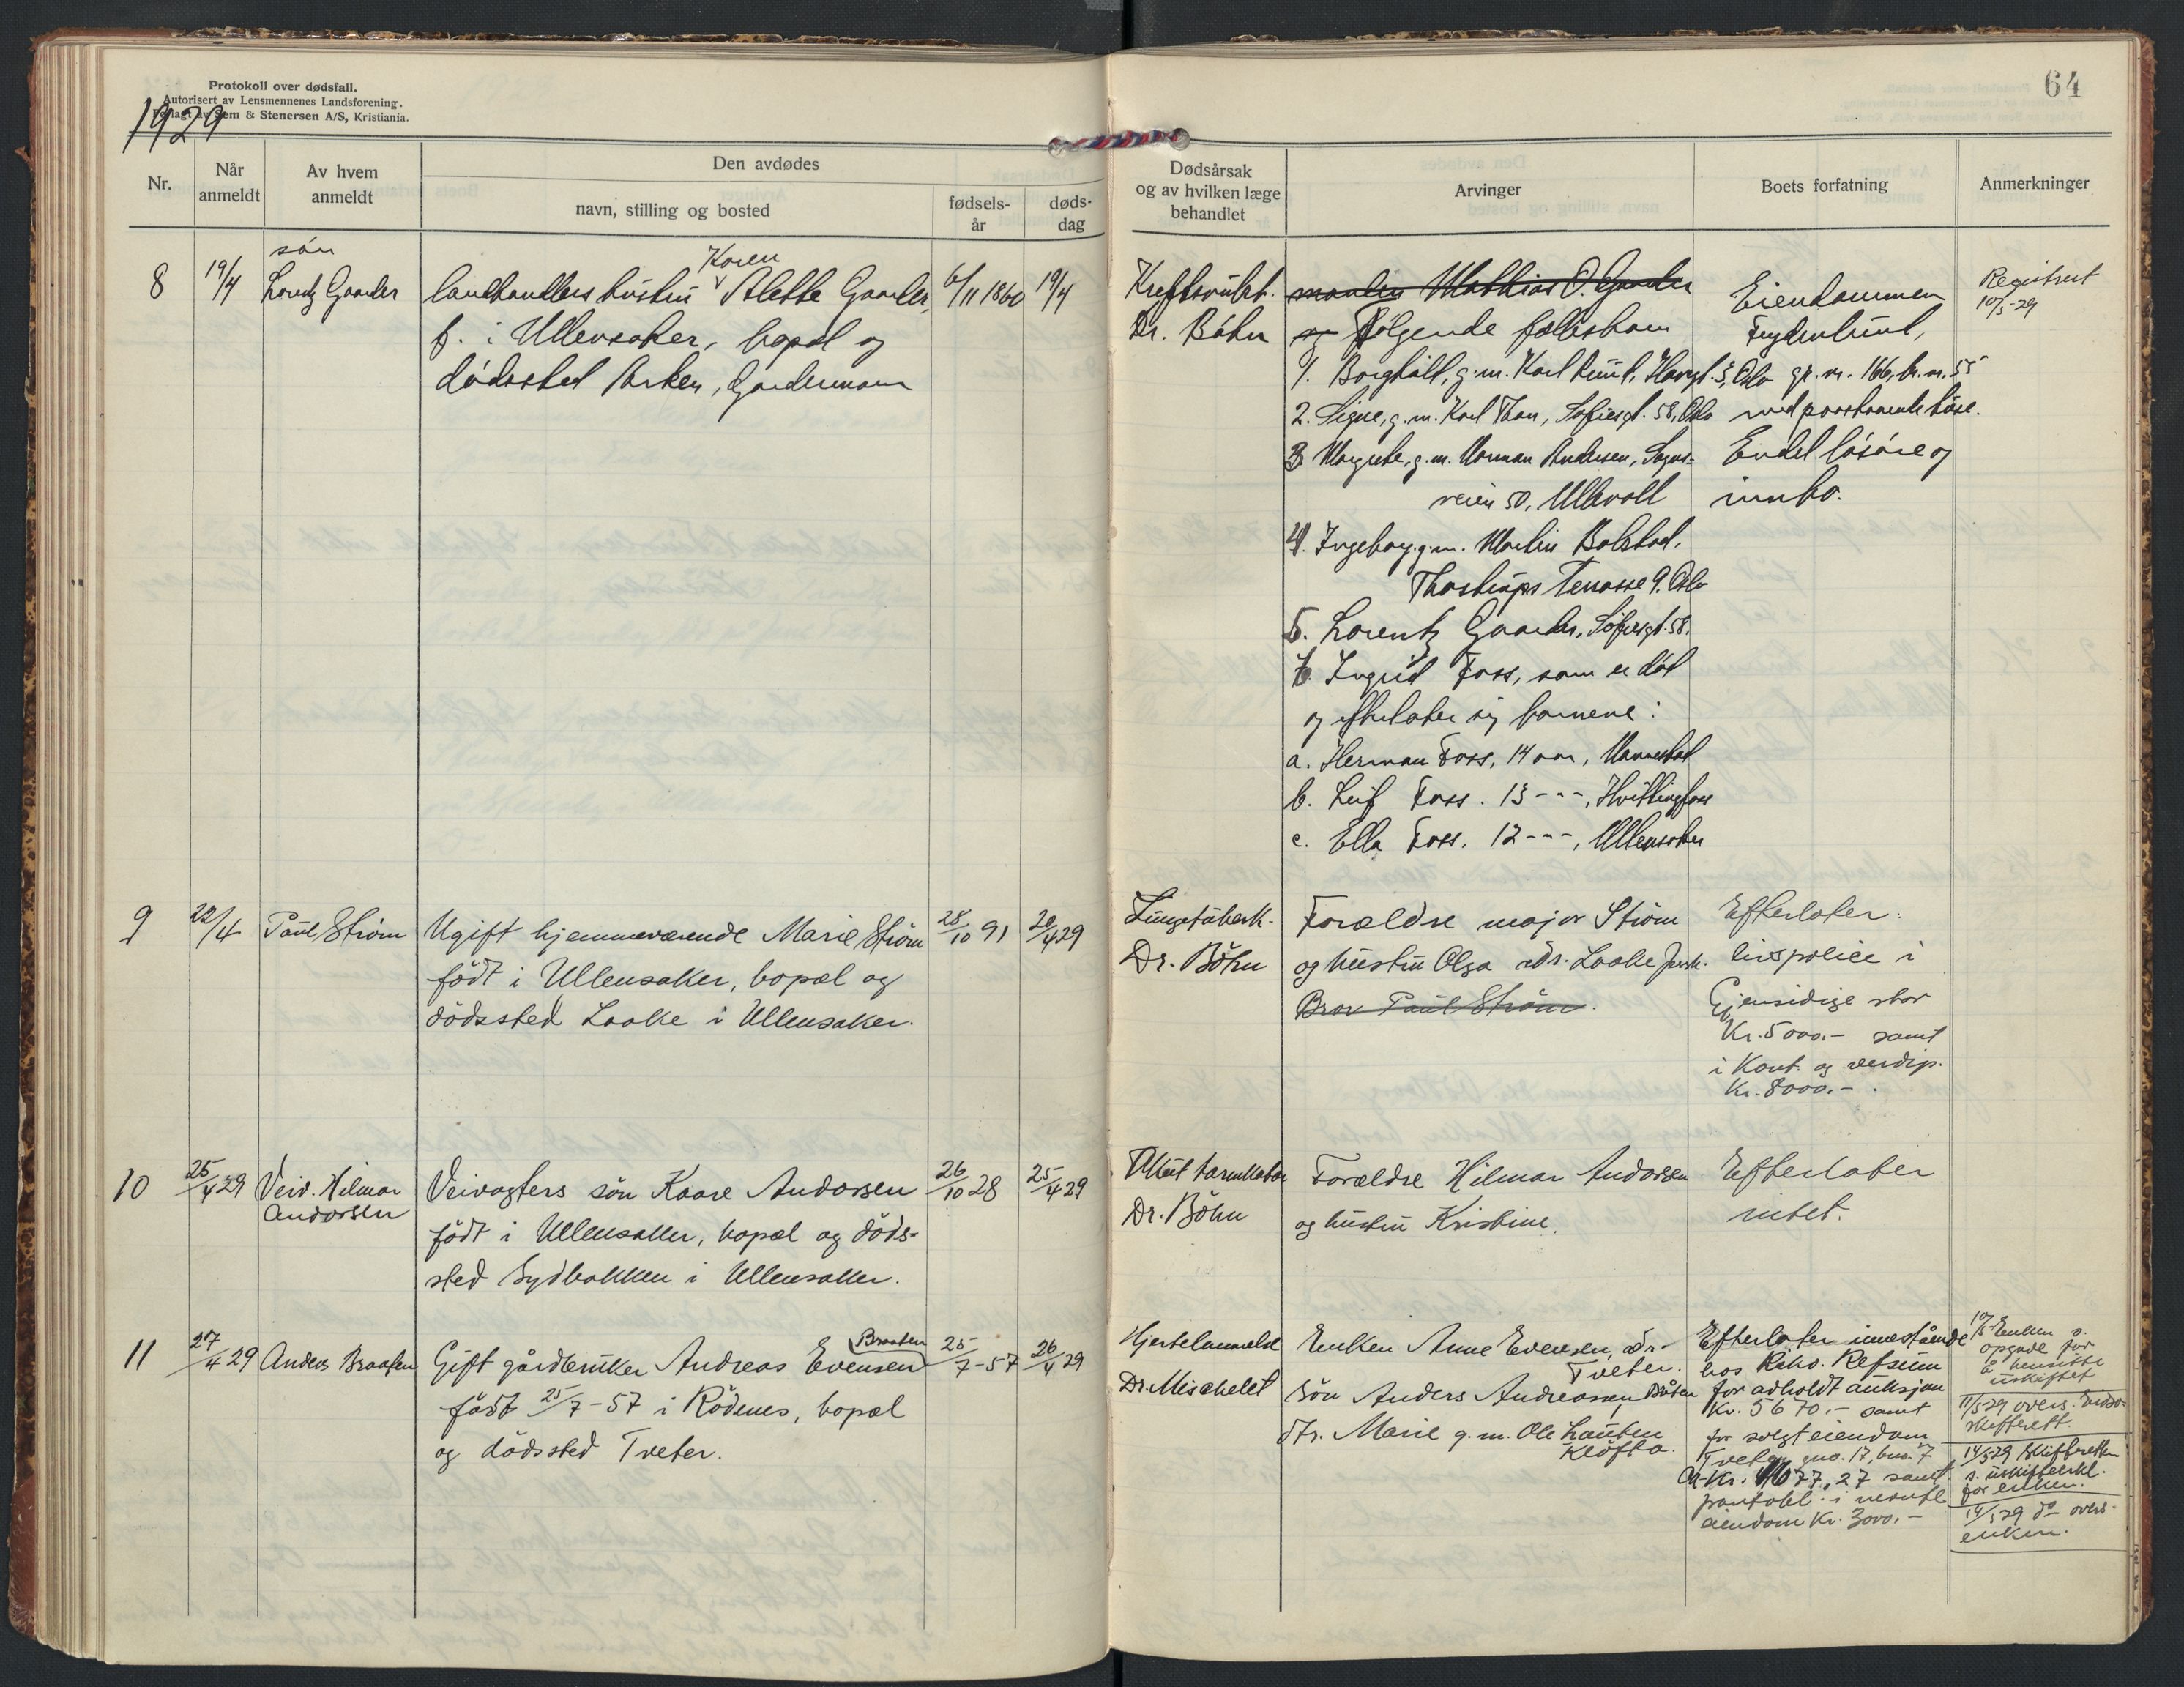 Protokoll over dødsfall.
Autorisert av Lensmennenes Landsforening.
Forlagt av Sem & Stenersen A/S, Kristiania.
1929
64
Nr.
Når anmeldt
Av hvem anmeldt
Den avdødes
navn, stilling og bosted
fødsels-år
døds-dag
Dødsårsak og av hvilken læge behandlet
Arvinger
Boets forfatning
Anmerkninger
8
19/4
søn
Lorentz Gaarder
Karen
landhandlers hustru Alette Gaarder,
f. i Ullensaker, bopæl og
dødssted Parken, Gardermoen
6/11 1860
19/4
Kreftsvulst.
Dr. Böhn
manden Mathias O. Gaarder
og Følgende fællesbarn
1. Borghild, g.m. Karl Lund, 5, Oslo
2. Signe, g.m. Karl Than, Sofiesgt. 58, Oslo
3. Margrete, g.m. Herman Andersen, Sogns-
veien 50, Ullevoll
4. Ingeborg g.m. Martin Bolstad,
Thostrups Terrasse 9. Oslo
5. Lorentz Gaarder, Sofiesgt. 58.
6. Ingrid Foss, som er død
og efterlater sig barnene:
a. Herman Foss, 14 aar, Nannestad
b. Leif Foss. 13 - - -, Hvittingfoss
c. Ella Foss. 12 - - -, Ullensaker
Eiendommen
Frydenlund,
gr. nr. 166, br. nr. 55
med paastaaende huse.
Endel løsøre og
innbo.
Registrert
10/5-29
9
22/4
Paul Strøm
Ugift hjemmeværende Marie Strøm
født i Ullensaker, bopæl og
dødssted Laake i Ullensaker.
28/10 91
20/4 29
Lungetuberk.
Dr. Böhn
Forældre major Strøm
og hustru Olga adr. Laake
Bror Paul Strøm.
Efterlater:
livspolice i
Gjensidige stor
Kr. 5000.- samt
i Kont. og verdip.
Kr. 8000.-.
10
25/4 29
Veiv. Hilmar
Andorsen
Veivogters søn Kaare Andorsen
født i Ullensaker, bopæl og døds-
sted Sydbakken i Ullensaker.
26/10 28
25/4 29
Akut tarmkatar
Dr. Böhn
Forældre Hilmar Andorsen
og hustru Kristine.
Efterlater
intet.
11
27/4 29
Anders Braaten
Braaten
Gift gårdbruker Andreas Evensen
født 25/7-57 i Rödenes, bopæl
og dødssted Tveter.
25/7-57
26/4 29
Hjertelammelse
Dr. Mischelet
Enken Anne Evensen, adr.
Tveter.
Søn Anders Andreassen Bråten
dtr. Marie g.m. Ole Lauten
Kløfta.
Efterlater innestående
hos Refsum
for avholdt auksjon
Kr. 5670.- samt
for solgt eiendom
Tveter gno. 17, bno. 7
samt
pantobl. i nevnte
eiendom Kr. 3000.-
10/5 Enken
opgave for
å hensitte
i uskiftet
11/5-29 overs.
skifterett.
14/5-29 Skifteretten
s. uskifteerkl.
for enken.
14/5 29 do overs.
enken.